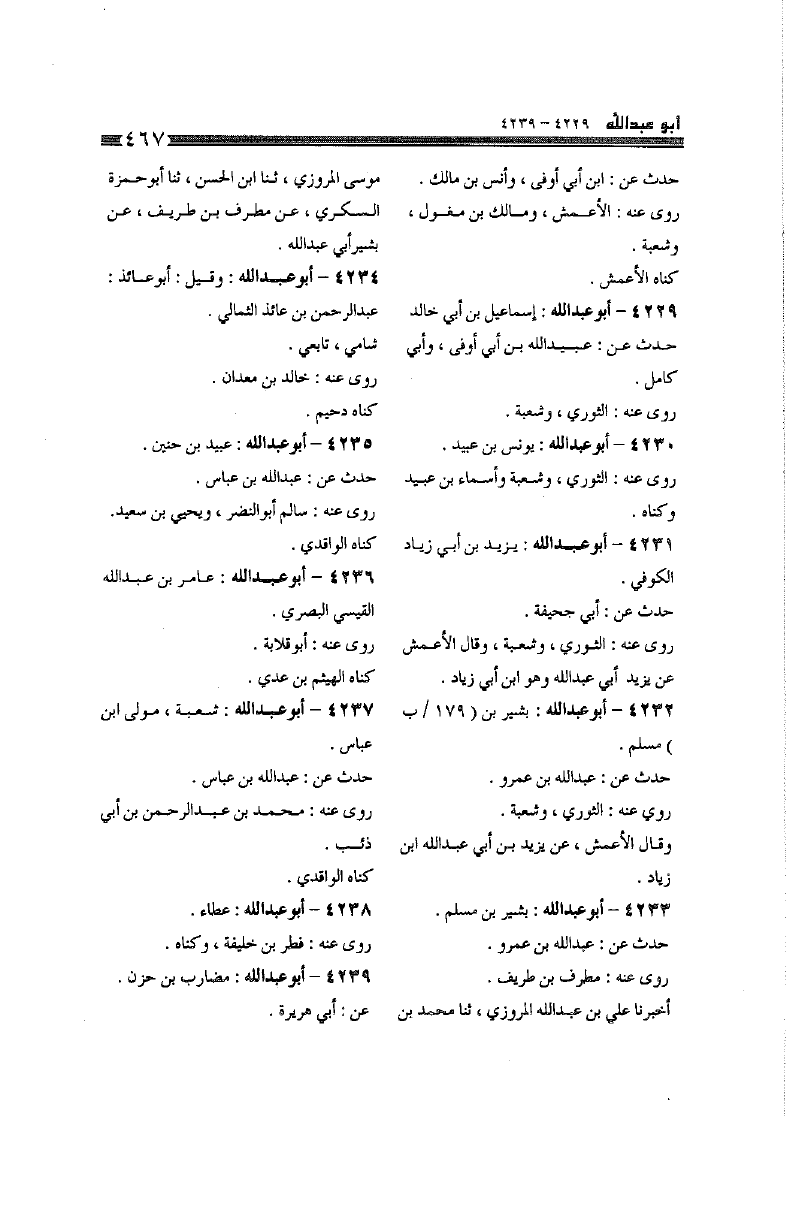 أبو عبدالله ٤٢٢٩ – ٤٢٣٩
٤٦٧
حدث عن : ابن أبي أوفى ، وأنس بن مالك .
روى عنه : الأعمش ، ومالك بن مغول ،
وشعبة .
كناه الأعمش .
٤٢٢٩ – أبوعبدالله : إسماعيل بن أبي خالد
حدث عن : عبيدالله بن أبي أوفى ، وأبي
كامل .
روى عنه : الثوري ، وشعبة .
٤٢٣٠ – أبوعبدالله : يونس بن عبيد .
روى عنه : الثوري ، وشعبة وأسماء بن عبيد
وكناه .
٤٢٣١ – أبوعبدالله : يزيد بن أبي زياد
الكوفي .
حدث عن : أبي جحيفة .
روى عنه : الثوري ، وشعبة ، وقال الأعمش
عن يزيد أبي عبدالله وهو ابن أبي زياد .
٤٢٣٢ – أبوعبدالله : بشير بن ( ١٧٩ / ب
) مسلم .
حدث عن : عبدالله بن عمرو .
روي عنه : الثوري ، وشعبة .
وقال الأعمش ، عن يزيد بن أبي عبدالله ابن
زياد .
٤٢٣٣ – أبوعبدالله : بشير بن مسلم .
حدث عن : عبدالله بن عمرو .
روى عنه : مطرف بن طريف .
أخبرنا علي بن عبدالله المروزي ، ثنا محمد بن
موسى المروزي ، ثنا ابن الحسن ، ثنا أبوحمزة
السكري ، عن مطرف بن طريف ، عن
بشيرأبي عبدالله .
٤٢٣٤ – أبوعبدالله : وقيل : أبوعائذ :
عبدالرحمن بن عائذ الثمالي .
شامي ، تابعي .
روى عنه : خالد بن معدان .
كناه دحيم .
٤٢٣٥ – أبوعبدالله : عبيد بن حنين .
حدث عن : عبدالله بن عباس .
روى عنه : سالم أبوالنضر ، ويحيي بن سعيد.
كناه الواقدي .
٤٢٣٦ – أبوعبدالله : عامر بن عبدالله
القيسي البصري .
روى عنه : أبوقلابة .
كناه الهيثم بن عدي .
٤٢٣٧ – أبوعبدالله : شعبة ، مولى ابن
عباس .
حدث عن : عبدالله بن عباس .
روى عنه : محمد بن عبدالرحمن بن أبي
ذئب .
كناه الواقدي .
٤٢٣٨ – أبوعبدالله : عطاء .
روى عنه : فطر بن خليفة ، وكناه .
٤٢٣٩ – أبوعبدالله : مضارب بن حزن .
عن : أبي هريرة .